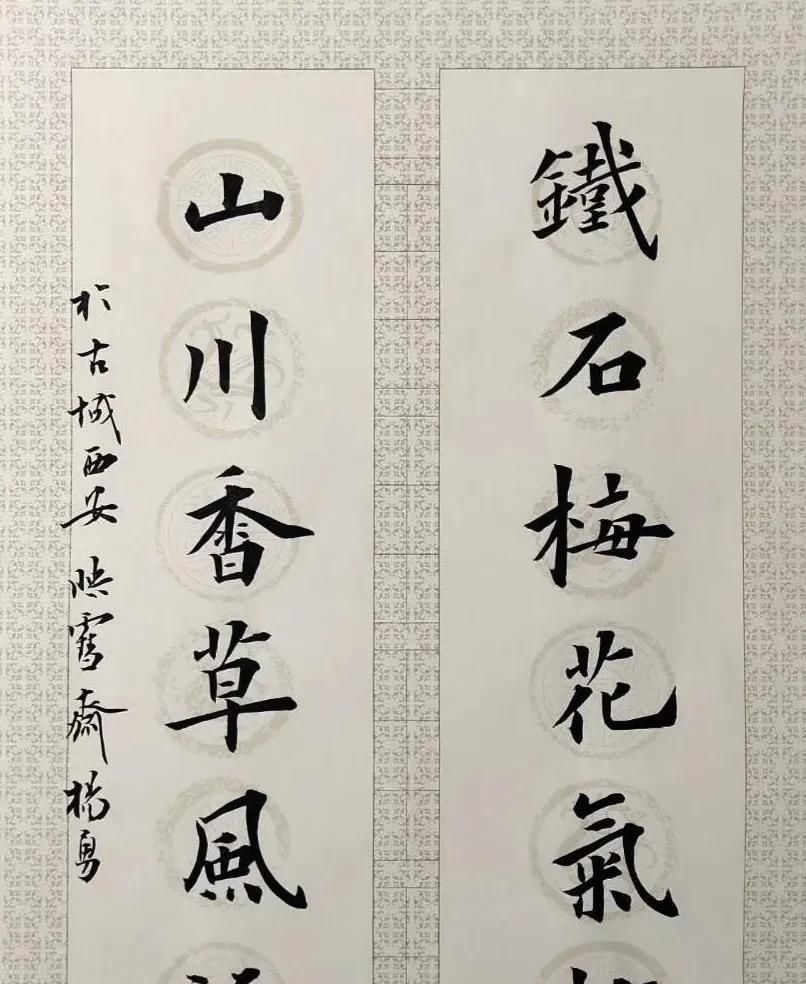 鐵石梅花氣
山川香草風
於古城西安映雪齋楊勇